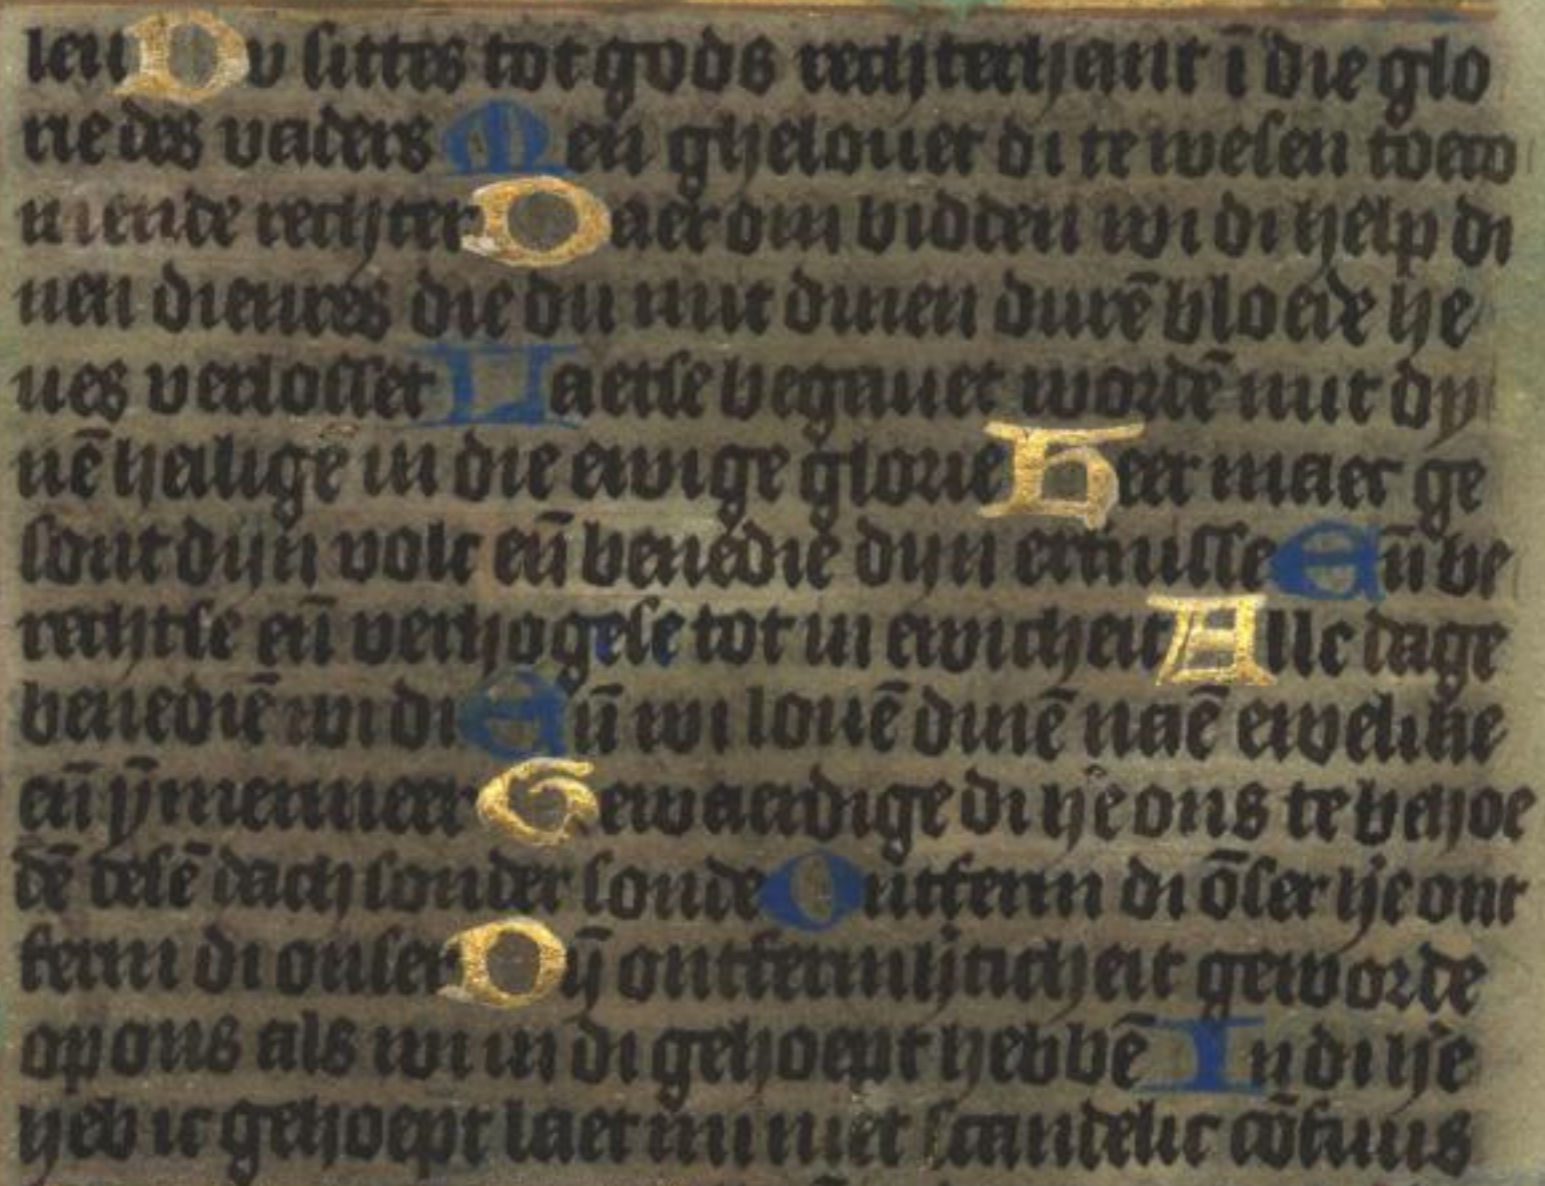 len Du sittes tot gods rechterhant ī die glo
rie des vaders Men ghelouet di te wesen toeco
mende rechter Daer om bidden wi di help di
nen dienres die du mit dinen durē bloede he
ues verlosset Laetse begauet wordē mit dy
nē heilige in die ewige glorie Heer maec ge
sont dijn volc eñ benedie dijn erfnisse Eñ be
rechtse eñ verhogese tot in ewicheit Alle dage
benediē wi di Eñ wi louē dinē naē ewelike
eñ ȳmermeer Gewaerdige di hē ons te behoe
dē desē dach sonder sonde Ontferm di ōser hē ont
ferm di onser Dȳ ontfermhticheit geworde
op ons als wi in di gehoept hebbē In di hē
heb ic gehoept laet mi niet scandelic cōfuus